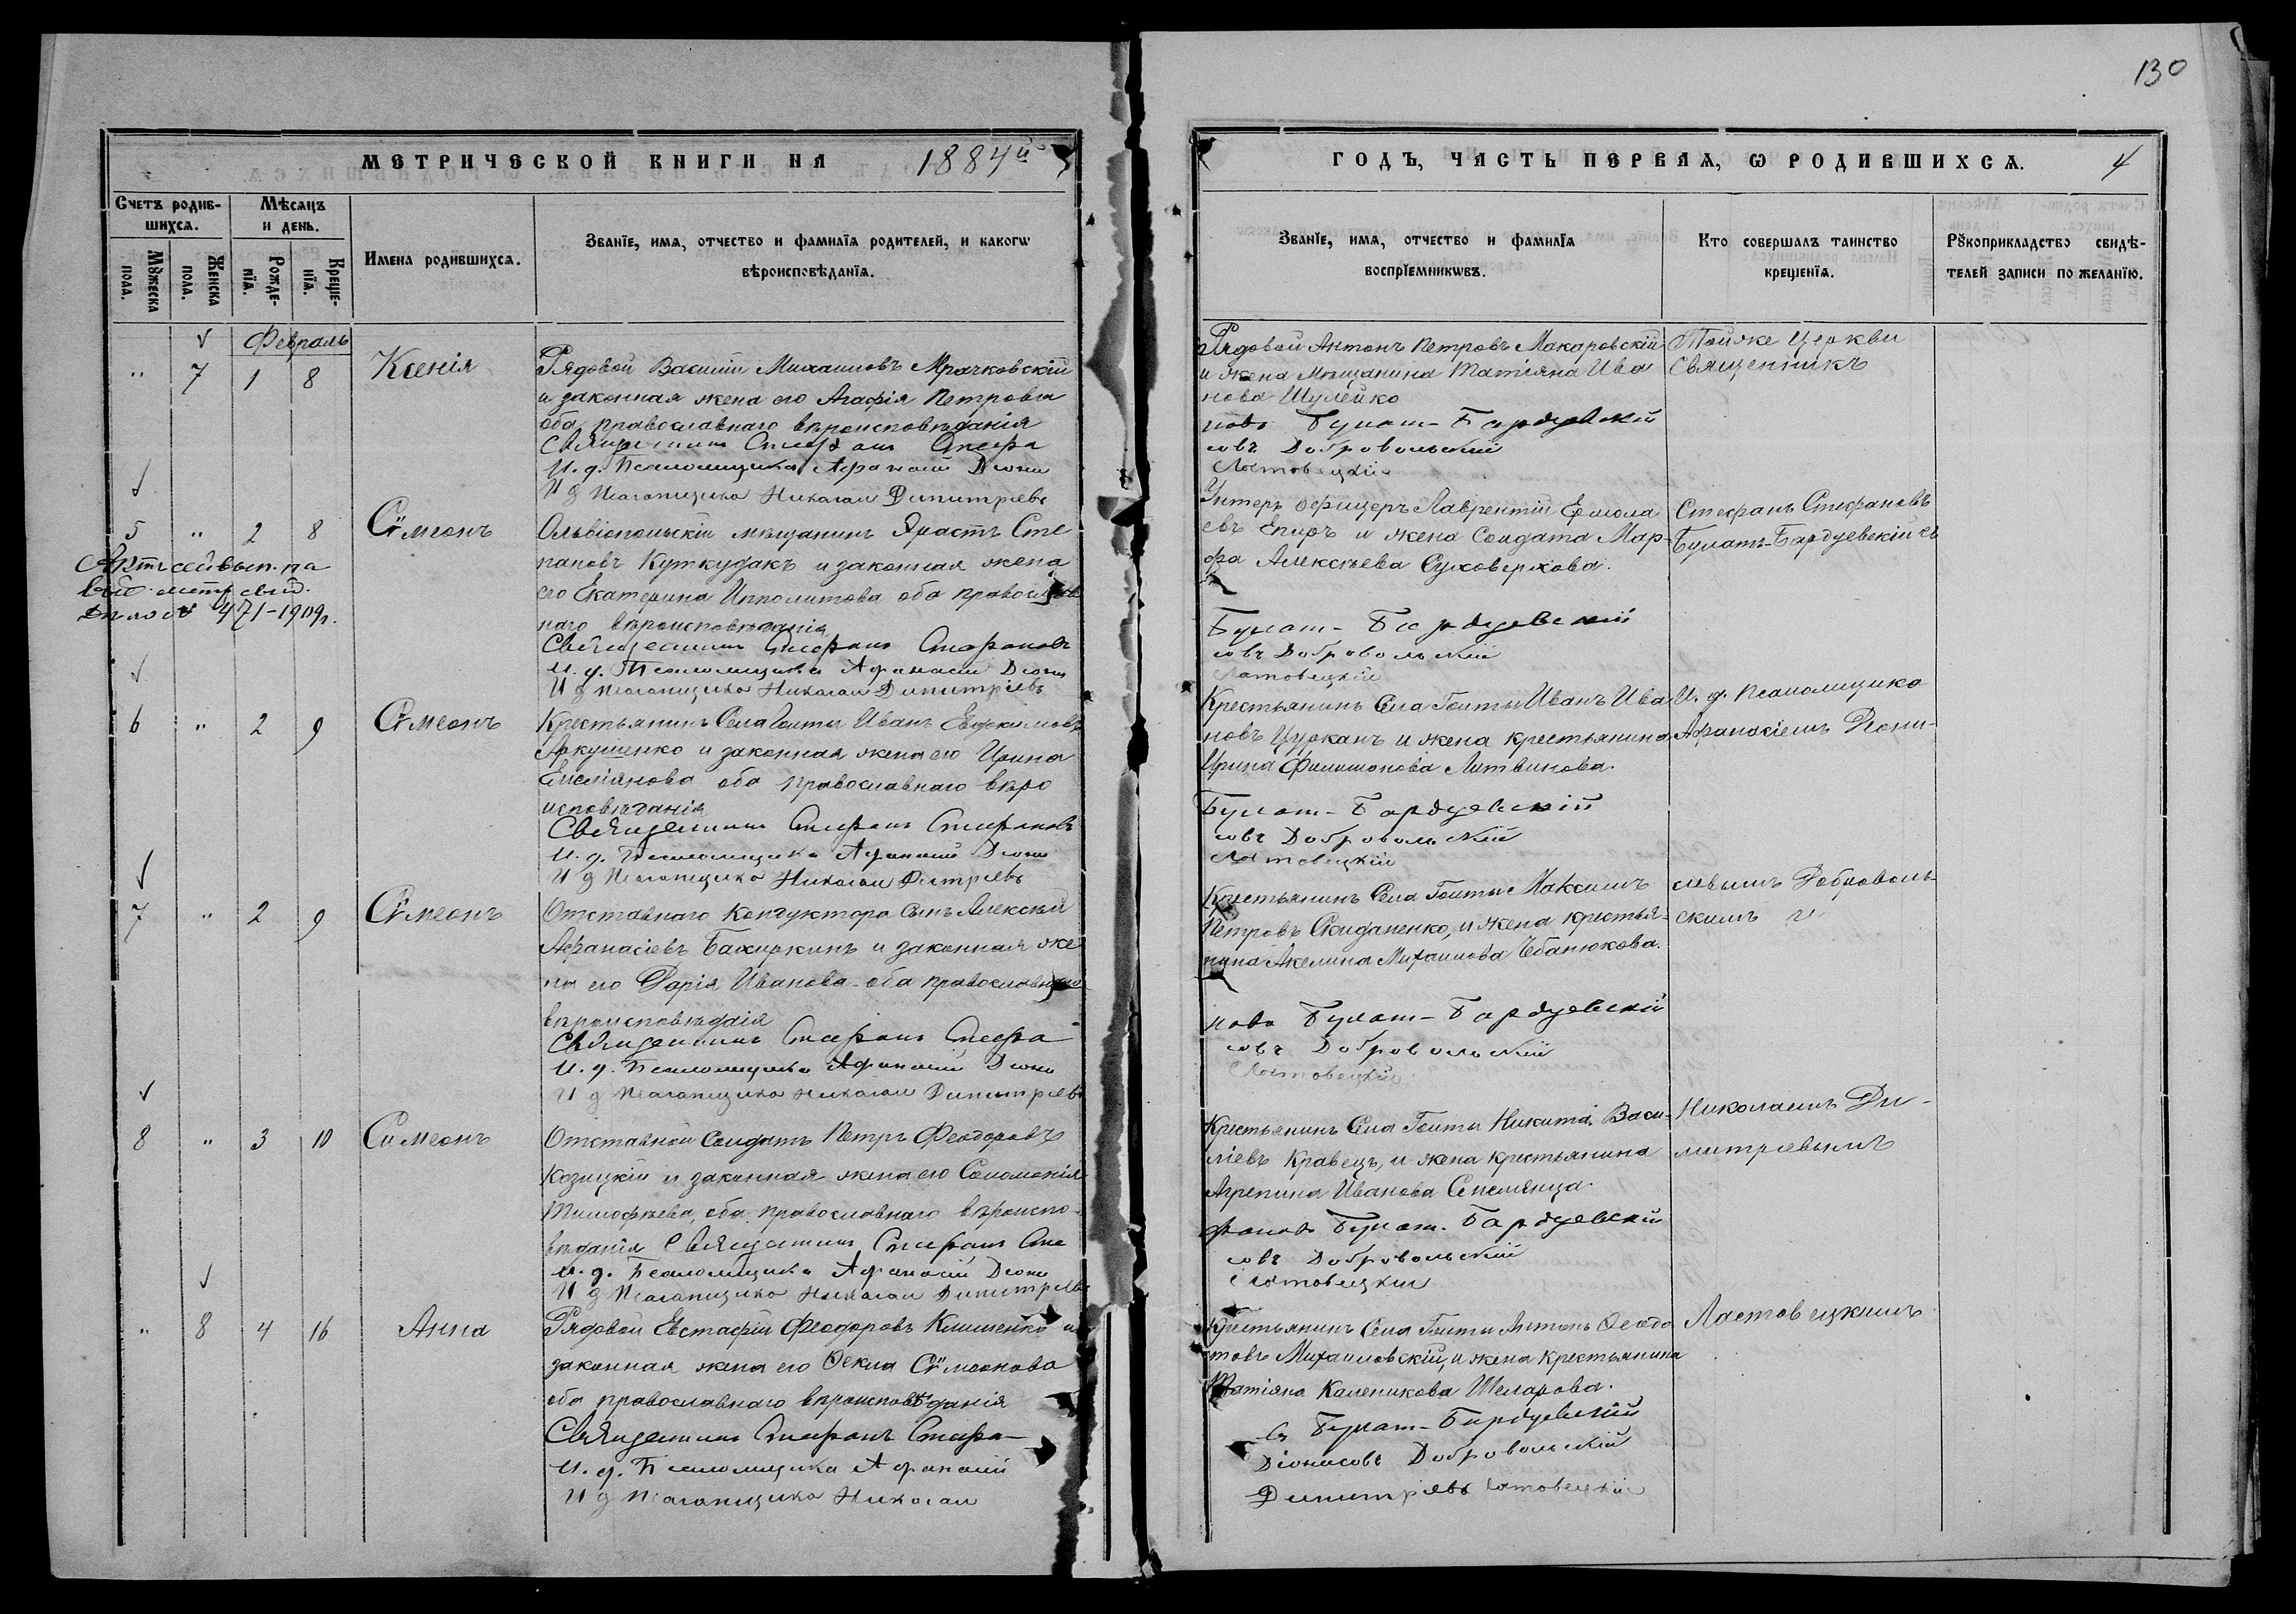 130
МЕТРИЧЕСКОЙ КНИГИ НА 1884й
ГОДЪ, ЧАСТЬ ПЕРВАЯ, Ѡ РОДИВШИХСЯ. 4
Счетъ родив-
шихся.
Мѣсяцъ
и день.
Мꙋжеска
пола.
Женска
пола.
Рожде-
нїя.
Креще-
нїя.
Имена родившихся.
Званїе, имя, отчество и фамилїя родителей, и какогѡ
вѣроисповѣданїя.
Званїе, имя, отчество и фамилїя
воспрїемникѡвъ.
Кто совершалъ таинство
крещенїя.
Рꙋкоприкладство свидѣ-
телей записи по желанїю.
Февраль
„ 7 1 8 Ксенія
Рядовой Василій Михаиловъ Мрачковскій
и законная жена его Агафія Петровна
оба православнаго вѣроисповѣданія
Священникъ Стефанъ Стефа
И. д. Псаломщика Афанасій Діони
И д Псаломщика Николай Димитріевъ
Рядовой Антонъ Петровъ Макаровскій
и жена мѣщанина Татіяна Ива
нова Шулейко
новъ Булат-Бардуевскій
совъ Добровольскій
Ластовецкій
Тойже Церкви
Священникъ
5 „ 2 8 Сѵмеонъ
Актъ сей вып. на
выд. метр. свид.
471-1909г.
Ольвіопольскій мѣщанинъ Ярастъ Сте
пановъ Куткудакъ и законная жена
его Екатерина Ипполитова оба православ
наго вѣроисповѣданія
Священникъ Стефанъ Стефановъ
И. д. Псаломщика Афанасій Діони
И д Псаломщика Николай Димитріевъ
Унтеръ офицеръ Лаврентій Ермола
евъ Епуръ и жена Солдата Мар-
фа Алексѣева Суховерхова.
Булат-Бардуевскій
совъ Добровольскій
Ластовецкій
Стефанъ Стефановъ
Булатъ-Бардуевскій съ
6 „ 2 9 Сѵмеонъ
Крестьянинъ Села Голты Иванъ Евдокимовъ
Аркушенко и законная жена его Ирина
Емеліянова оба православнаго вѣро
исповѣданія
Священникъ Стефанъ Стефановъ
И. д. Псаломщика Афанасій Діони
И д Псаломщика Николай Димитріевъ
Крестьянинъ Села Голты Иванъ Ива
новъ Цурканъ и жена крестьянина
Ирина Филимонова Литвинова.
Булат-Бардуевскій
совъ Добровольскій
Ластовецкій
И. д. Псаломщика
Афанасіемъ Діони-
7 „ 2 9 Сѵмеонъ
Отставнаго Кондуктора сынъ Алексѣй
Афанасіевъ Бахиркинъ и законная же
на его Дарія Иванова оба православнаго
вѣроисповѣданія
Священникъ Стефанъ Стефа
И. д. Псаломщика Афанасій Діони
И д Псаломщика Николай Димитріевъ
Крестьянинъ Села Голты Максимъ
Петровъ Скиданенко, и жена крестья-
нина Акелина Михаилова Чебанюкова.
новъ Булат-Бардуевскій
совъ Добровольскій
Ластовецкій
сіевымъ Доброволь-
скимъ и
8 „ 3 10 Сѵмеонъ
Отставной Солдатъ Петръ Феодоровъ
Козицкій и законная жена его Соломонія
Тимофѣева, оба православнаго вѣроиспо-
вѣданія Священникъ Стефанъ Сте
И. д. Псаломщика Афанасій Діони
И д Псаломщика Николай Димитріевъ
Крестьянинъ Села Голты Никита Васи-
ліевъ Кравецъ, и жена крестьянина
Агрепина Иванова
фановъ Булат-Бардуевскій
совъ Добровольскій
Ластовецкій
Николаемъ Ди-
митріевымъ
„ 8 4 16 Анна
Рядовой Евстафій Феодоровъ Клименко и
законная жена его Ѳекла Сѵмеонова
оба православнаго вѣроисповѣданія
Священникъ Стефанъ Стефа-
И. д. Псаломщика Афанасій
И д Псаломщика Николай
Крестьянинъ Села Голты Антонъ Ѳеодо
товъ Михаиловскій, и жена крестьянина
Татіяна Каленикова Шеларова.
въ Булат-Бардуевскій
Діонисовъ Добровольскій
Димитріевъ Ластовецкій
Ластовецкимъ